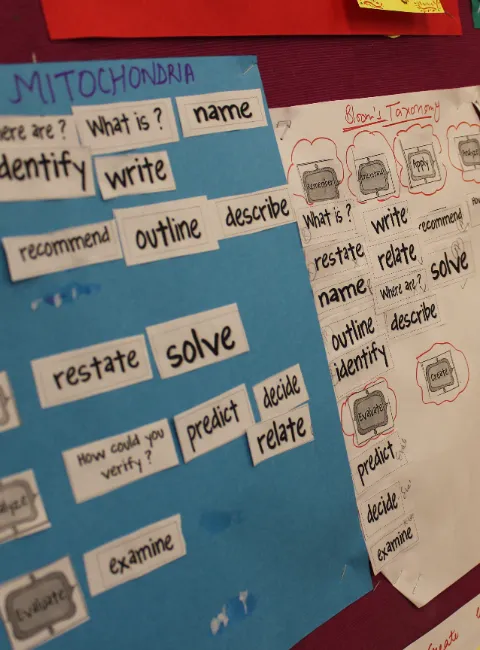 MITOCHONDRIA
ere are ? What is ? name
dentify write
recommend outline describe
restate solve
How could you verify ? predict decide
relate
examine
Evaluate
Bloom's Taxonomy
Remember Apply
What is ? write recommend
restate relate
name Where are ? solve
outline describe
identify
Evaluate Create
predict
decide
examine
create